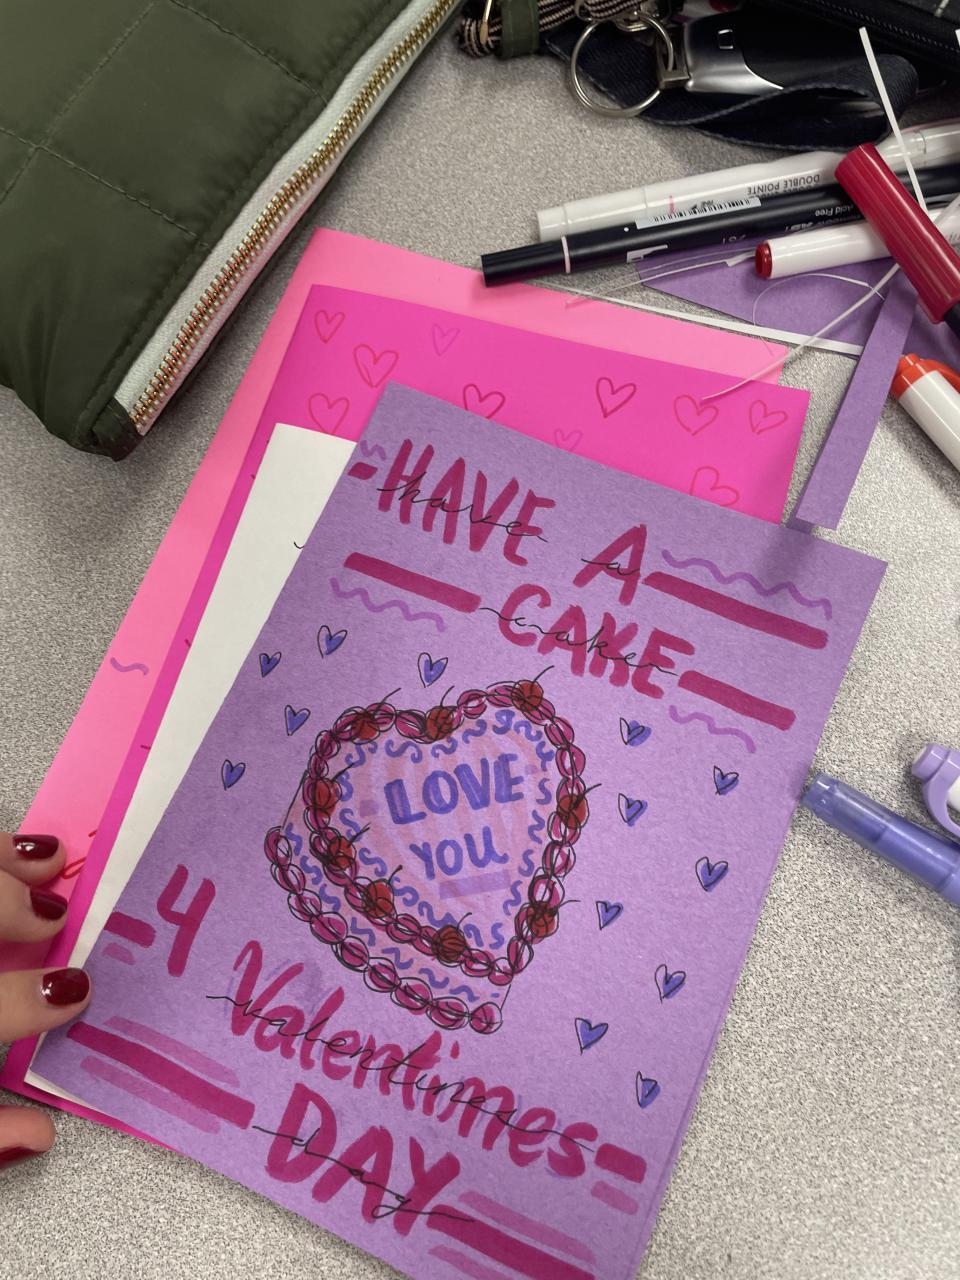 DOUBLE POINTE
Acid Free
HAVE A
have a
CAKE
cake
LOVE
YOU
4
Valentines
valentines
DAY
day